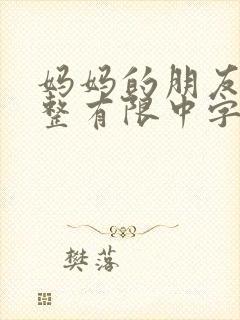 妈妈的朋友
整有限中字
樊落